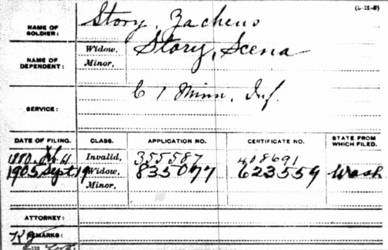 (3-15-8)
NAME OF SOLDIER: Story, Zacheus
NAME OF DEPENDENT: Widow, Story, Scena
Minor,
SERVICE: C 1 Minn. Inf.
DATE OF FILING. CLASS. APPLICATION NO. CERTIFICATE NO. STATE FROM WHICH FILED.
Invalid, 355587 418691
1905 Sept 19 Widow, 835077 623559 Wash
Minor,
ATTORNEY:
REMARKS: